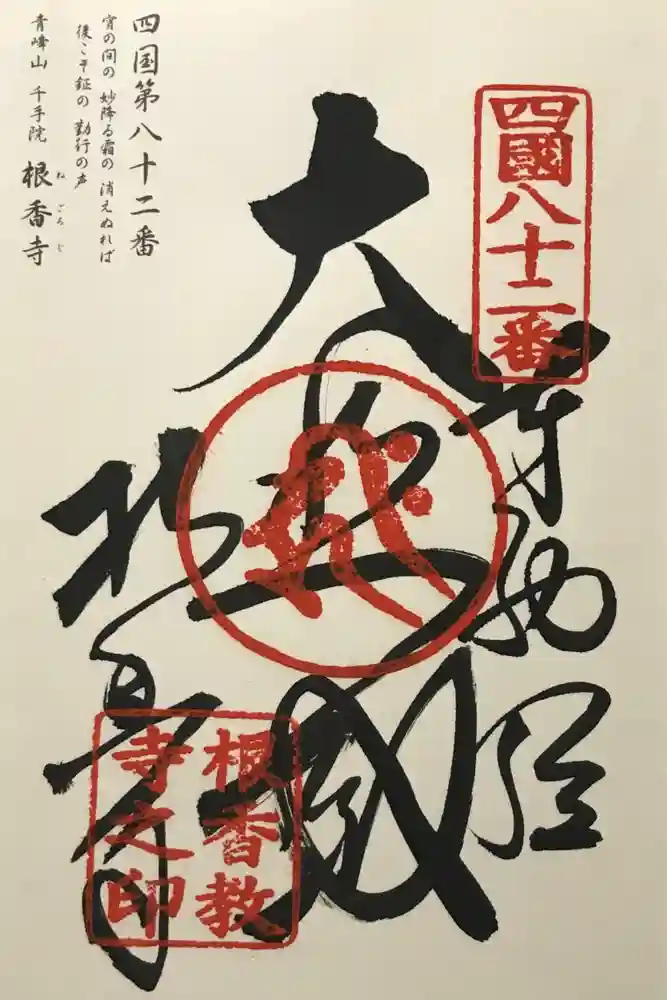 四國八十二番
奉納経
大
根香寺
根香教
寺之印
四国第八十二番
宵の間の 妙降る霜の 消えぬれば
後こそ鉦の 勤行の声
青峰山 千手院 根香寺
ねごろじ